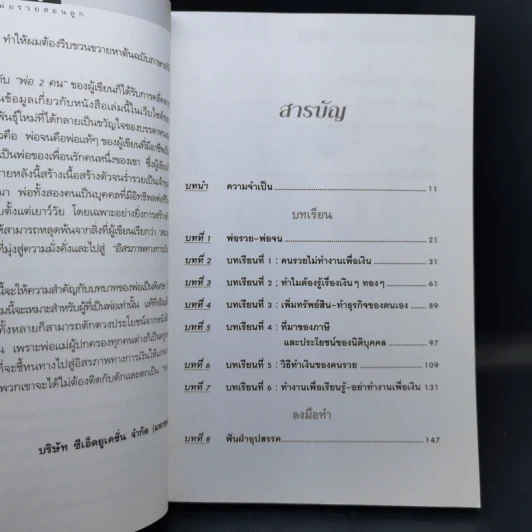 พ่อรวยสอนลูก
ทำให้ผมต้องรีบขวนขวายหาต้นฉบับภาษา
กับ "พ่อ 2 คน" ของผู้เขียนก็ได้รับการ
ข้อมูลเกี่ยวกับหนังสือเล่มนี้ในเว็บไซต์
พันธุ์ใหม่ที่ได้กลายเป็นขวัญใจของบรรดา
คือ พ่อจนคือพ่อแท้ๆ ของผู้เขียนที่มีอาชีพ
เป็นพ่อของเพื่อนรักคนหนึ่งของเขา ซึ่งผู้เขียน
ายหลังนี้สร้างเนื้อสร้างตัวจนร่ำรวยเป็น
มา พ่อทั้งสองคนเป็นบุคคลที่มีอิทธิพลต่อ
ตั้งแต่เยาว์วัย โดยเฉพาะอย่างยิ่งการสร้าง
ให้สามารถหลุดพ้นจากสิ่งที่ผู้เขียนเรียกว่า
ที่มุ่งสู่ความมั่งคั่งและไปสู่ "อิสรภาพทางการเงิน
นี้จะให้ความสำคัญกับบทบาทของพ่อเป็นพิเศษ
มนี้จะเหมาะสำหรับผู้ที่เป็นพ่อเท่านั้น แท้ที่จริงแล้ว
ทั้งหลายก็สามารถตักตวงประโยชน์จากหนังสือ
น เพราะพ่อแม่ผู้ปกครองทุกคนต่างก็เป็น
จะชี้หนทางไปสู่อิสรภาพทางการเงินให้แก่
พวกเขาจะได้ไม่ต้องติดกับดักและตกเป็น
บริษัท ซีเอ็ดยูเคชั่น จำกัด (มหาชน)
สารบัญ
บทนำ ความจำเป็น 11
บทเรียน
บทที่ 1 พ่อรวย-พ่อจน 21
บทที่ 2 บทเรียนที่ 1 : คนรวยไม่ทำงานเพื่อเงิน 31
บทที่ 3 บทเรียนที่ 2 : ทำไมต้องรู้เรื่องเงินๆ ทองๆ 61
บทที่ 4 บทเรียนที่ 3 : เพิ่มทรัพย์สิน-ทำธุรกิจของตนเอง 89
บทที่ 5 บทเรียนที่ 4 : ที่มาของภาษี
และประโยชน์ของนิติบุคคล 97
บทที่ 6 บทเรียนที่ 5 : วิธีทำเงินของคนรวย 109
บทที่ 7 บทเรียนที่ 6 : ทำงานเพื่อเรียนรู้-อย่าทำงานเพื่อเงิน 131
ลงมือทำ
บทที่ 8 ฟันฝ่าอุปสรรค 147